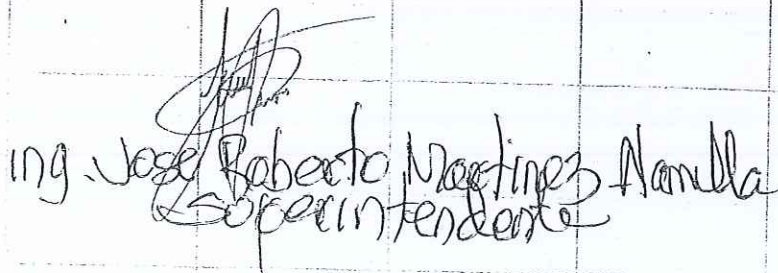 Ing. Jose Roberto Martinez
Soperintendente